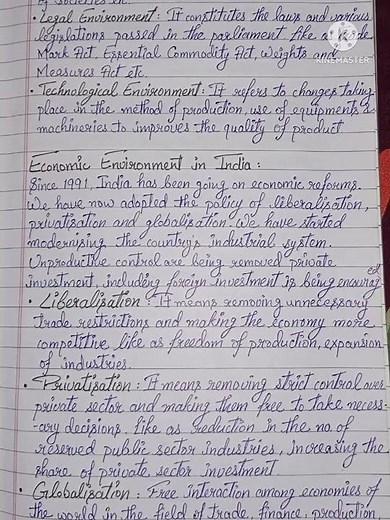 of societies etc.
• Legal Environment: It constitutes the laws and various
legislations passed in the parliament like a Trade
Mark Act, Essential Commodity Act, Weights and
Measures Act etc.
KINEMASTER
• Technological Environment: It refers to changes taking
place in the method of production, use of equipments &
machineries to improves the quality of product
Economic Environment in India :
Since 1991, India has been going on economic reforms.
We have now adopted the policy of liberalisation,
privatisation and globalisation. We have started
modernising the country's industrial system.
Unproductive control are being removed private
investment, including foreign investment is being encouraged
• Liberalisation : It means removing unnecessary
trade restrictions and making the economy more
competitive like as freedom of production, expansion
of industries.
• Privatisation : It means removing strict control over
private sector and making them free to take necess-
-ary decisions, like as reduction in the no. of
reserved public sector industries, increasing the
share of private sector investment
• Globalisation : Free interaction among economies of
the world in the field of trade, finance, production